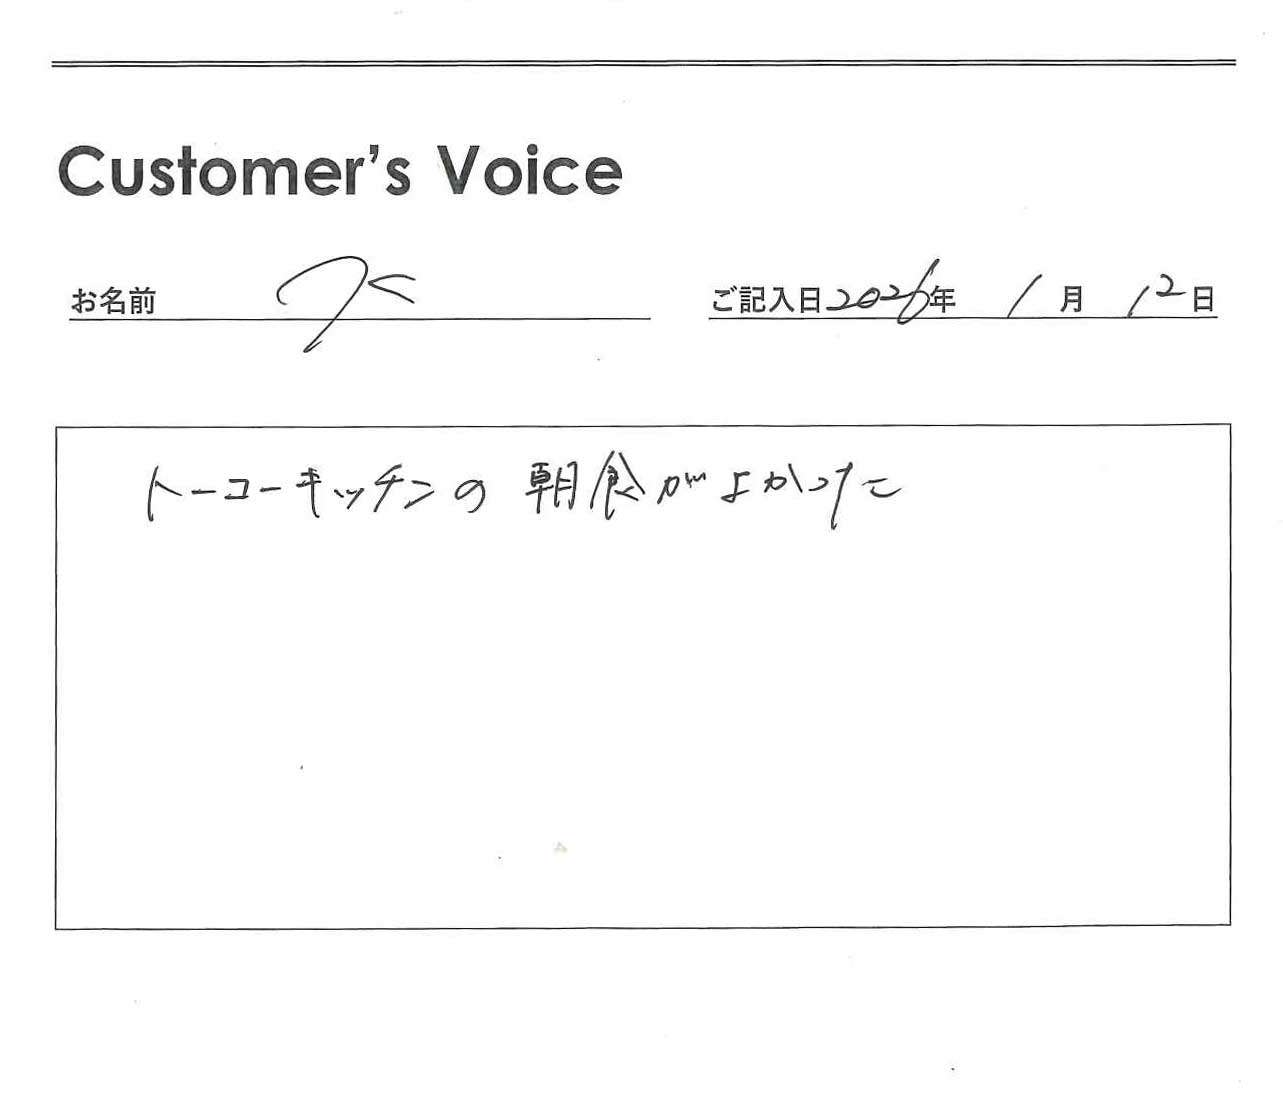 Customer's Voice
お名前
ご記入日2026年 1月 12日
トーコーキッチンの朝食がよかった